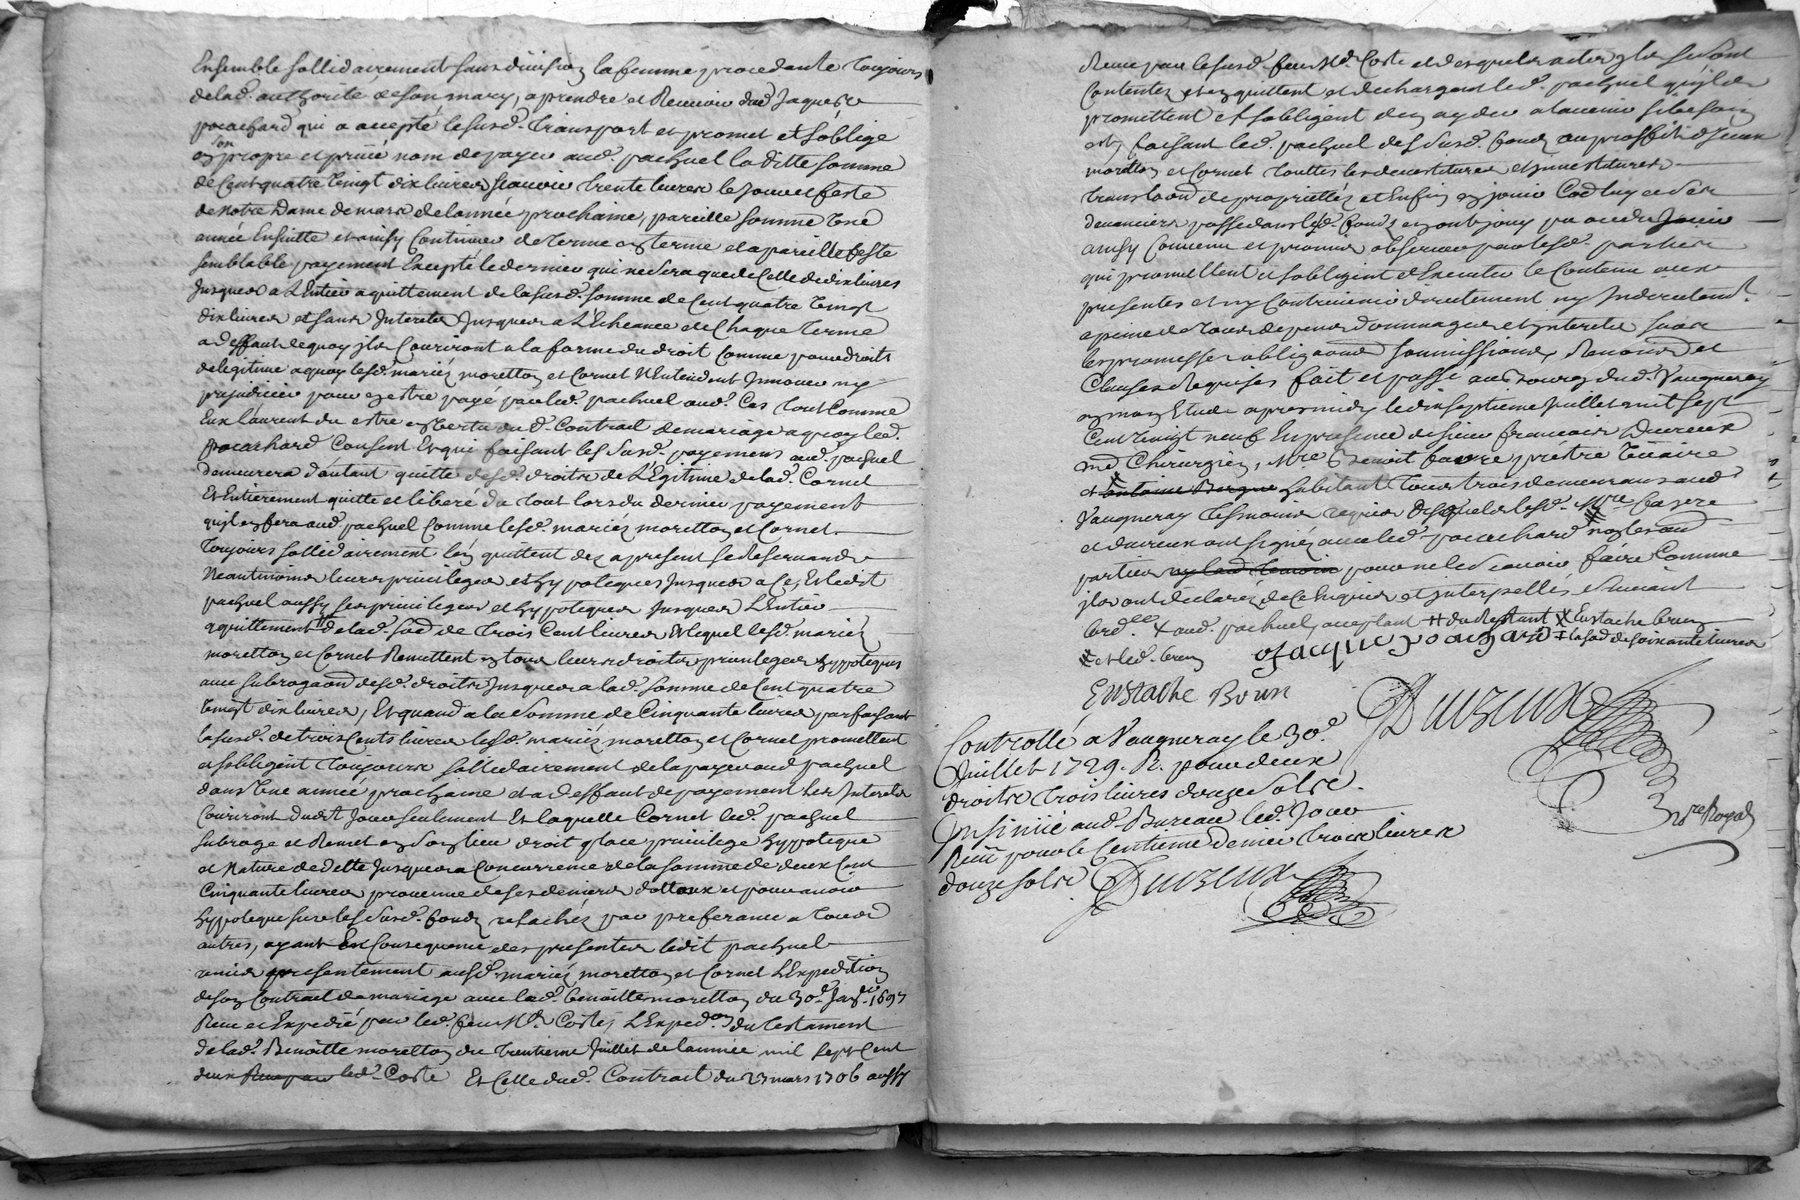 Ensemble sollidairement sans division la femme procedante toujours
delad. authorité de son mary, a prendre et Recevoir dud. Jaques
pocachard qui a accepté lesusd. transport et promet et soblige
en son propre et privé nom de payer aud. pachuel la ditte somme
de Cent quatre vingt dix livres scavoir trente livres le jour et feste
de notre Dame de mars de lannée prochaine, pareille somme une
année Ensuitte et ainsy Continuer de terme en terme et a pareille feste
semblable payement Excepté le dernier qui ne sera que de Celle de dix livres
Jusques a LEntier aquittement de lasusd. somme de Cent quatre vingt
dix livres et sans Interets Jusques a LEcheance de Chaque terme
a deffaut de quoy ils Courront a la forme du droit Comme pour droits
de legitime a quoy lesd. mariés moretton et Cornet NEntendent Innover ny
prejudicier pour en estre payé par led. pachuel aud. Cas tout Comme
Eux lauront du estre en vertu dud. Contrait de mariage a quoy led.
pocachard Consent Et qui faisant les susd. payemens aud. pachuel
demeurera dautant quitte desd. droits de LEgitime de lad. Cornet
Et Entierement quitte et liberé du tout lors du dernier payement
quil en fera aud. pachuel Comme lesd. mariés moretton et Cornet
toujours sollidairement len quittent dez a present se Reservand
Neantmoins leurs privileges et hypoteques Jusques a ce, Et ledit
pachuel aussy ses privileges et hypoteques Jusques LEntier
aquittement # de lad. so.e de trois Cent livres Et lequel lesd. mariés
moretton et Cornet Remettent en tous leurs droits privileges hypoteques
avec subrogaon desd. droits Jusques a lad. somme de Cent quatre
vingt dix livres, Et quand a la somme de Cinquante livres parfaisant
lasusd. de trois Cents livres lesd. mariés moretton et Cornet promettent
et sobligent toujours sollidairement de la payer aud. pachuel
dans une année prochaine et a deffaut de payement les Interets
Courront dudit jour seulement Et laquelle Cornet led. pachuel
subroge et Remet en son lieu droit place privilege hypoteque
et Nature de dette Jusques a Concurrence de la somme de deux Cent
Cinquante livres provenue de ses deniers dottaux et pour avoir
hypoteque sur lesd. susd. fonds relachés par preferance a tous
autres, ayant En Consequence des presentes ledit pachuel
remis presentement ausd. mariés moretton et Cornet LExpedition
de son Contrait de mariage avec lad. benoitte moretton du 30e Janer 1697
Receu et Expedié par led. feu Me Coste, LExped.on du testament
de lad. Benoitte moretton du trentieme Juillet de lannée mil sept Cent
deux Receu par led. Coste Et Celle dud. Contrait du 27 mars 1706 aussy
Receu par lesusd. feu Me. Coste et desquels actes ils se sont
Contentés et en quittent et dechargent led. pachuel quils
promettent et sobligent den ayder a lavenir si besoin
est, faisant led. pachuel desd. susd. fonds au proffit diceux
moretton et Cornet touttes les devestitures et investitures
translaon de proprietés et Enfin en jouir Co. luy et ses
devanciers possedans lesd. fonds en ont jouy pu ou du Jouir
ainsy Convenu et promis observer par lesd. parties
qui promettent et sobligent dExecuter le Contenu aux
presentes et ny Contrevenir directement ny Indirectement
a peine de tous depens dommages et interets sous
les promesses obligaons soumissions Renoncia.ons et
Clauses Requises fait et passé au Bourg dud. Vaugneray
en mon Etude apres midy le dix septieme Juillet mil sept
Cent vingt neuf En presence de sieur francois Duvreux
md Chirurgien, Mre Benoit favre prêtre vicaire
et antoine Bergne habitant tous trois demeurans aud.
Vaugneray tesmoins requis desquels lesd. Mre favre
et duvreux ont signé avec led. pocachard non les aud.
parties ny lad. temoin pour ne le scavoir faire Comme
ils ont declaré de ce Enquis et interpellés suivant
lord.ce + aud. pachuel, acceptant # du restant X Eustache brun
X et led. brun Jacque pocachard + lasod. de soixante livres
Eustache Brun
Duvreux
Controllé a Vaugneray le 30e.
Juillet 1729. R. pour deux
droits trois livres douze sols
Insinué aud. Bureau led. Jour
Receu pour le Centieme denier trois livres
douze sols Duvreux
Nre Royal